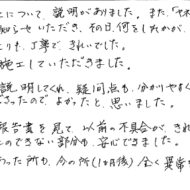 について、説明がありました。また、「ヤネ
知らせいただき、その日、何をしたかが、
とても、丁寧で、きれいでした。
施工していただきました。
説明してくれ、疑問点も、分かりやすく
ださったので よかったと、思いました。
報告書を見て、以前の不具合が、きれ
とのできない部分も、安心できました。
った所も、今の所(1ヶ月後)全く異常